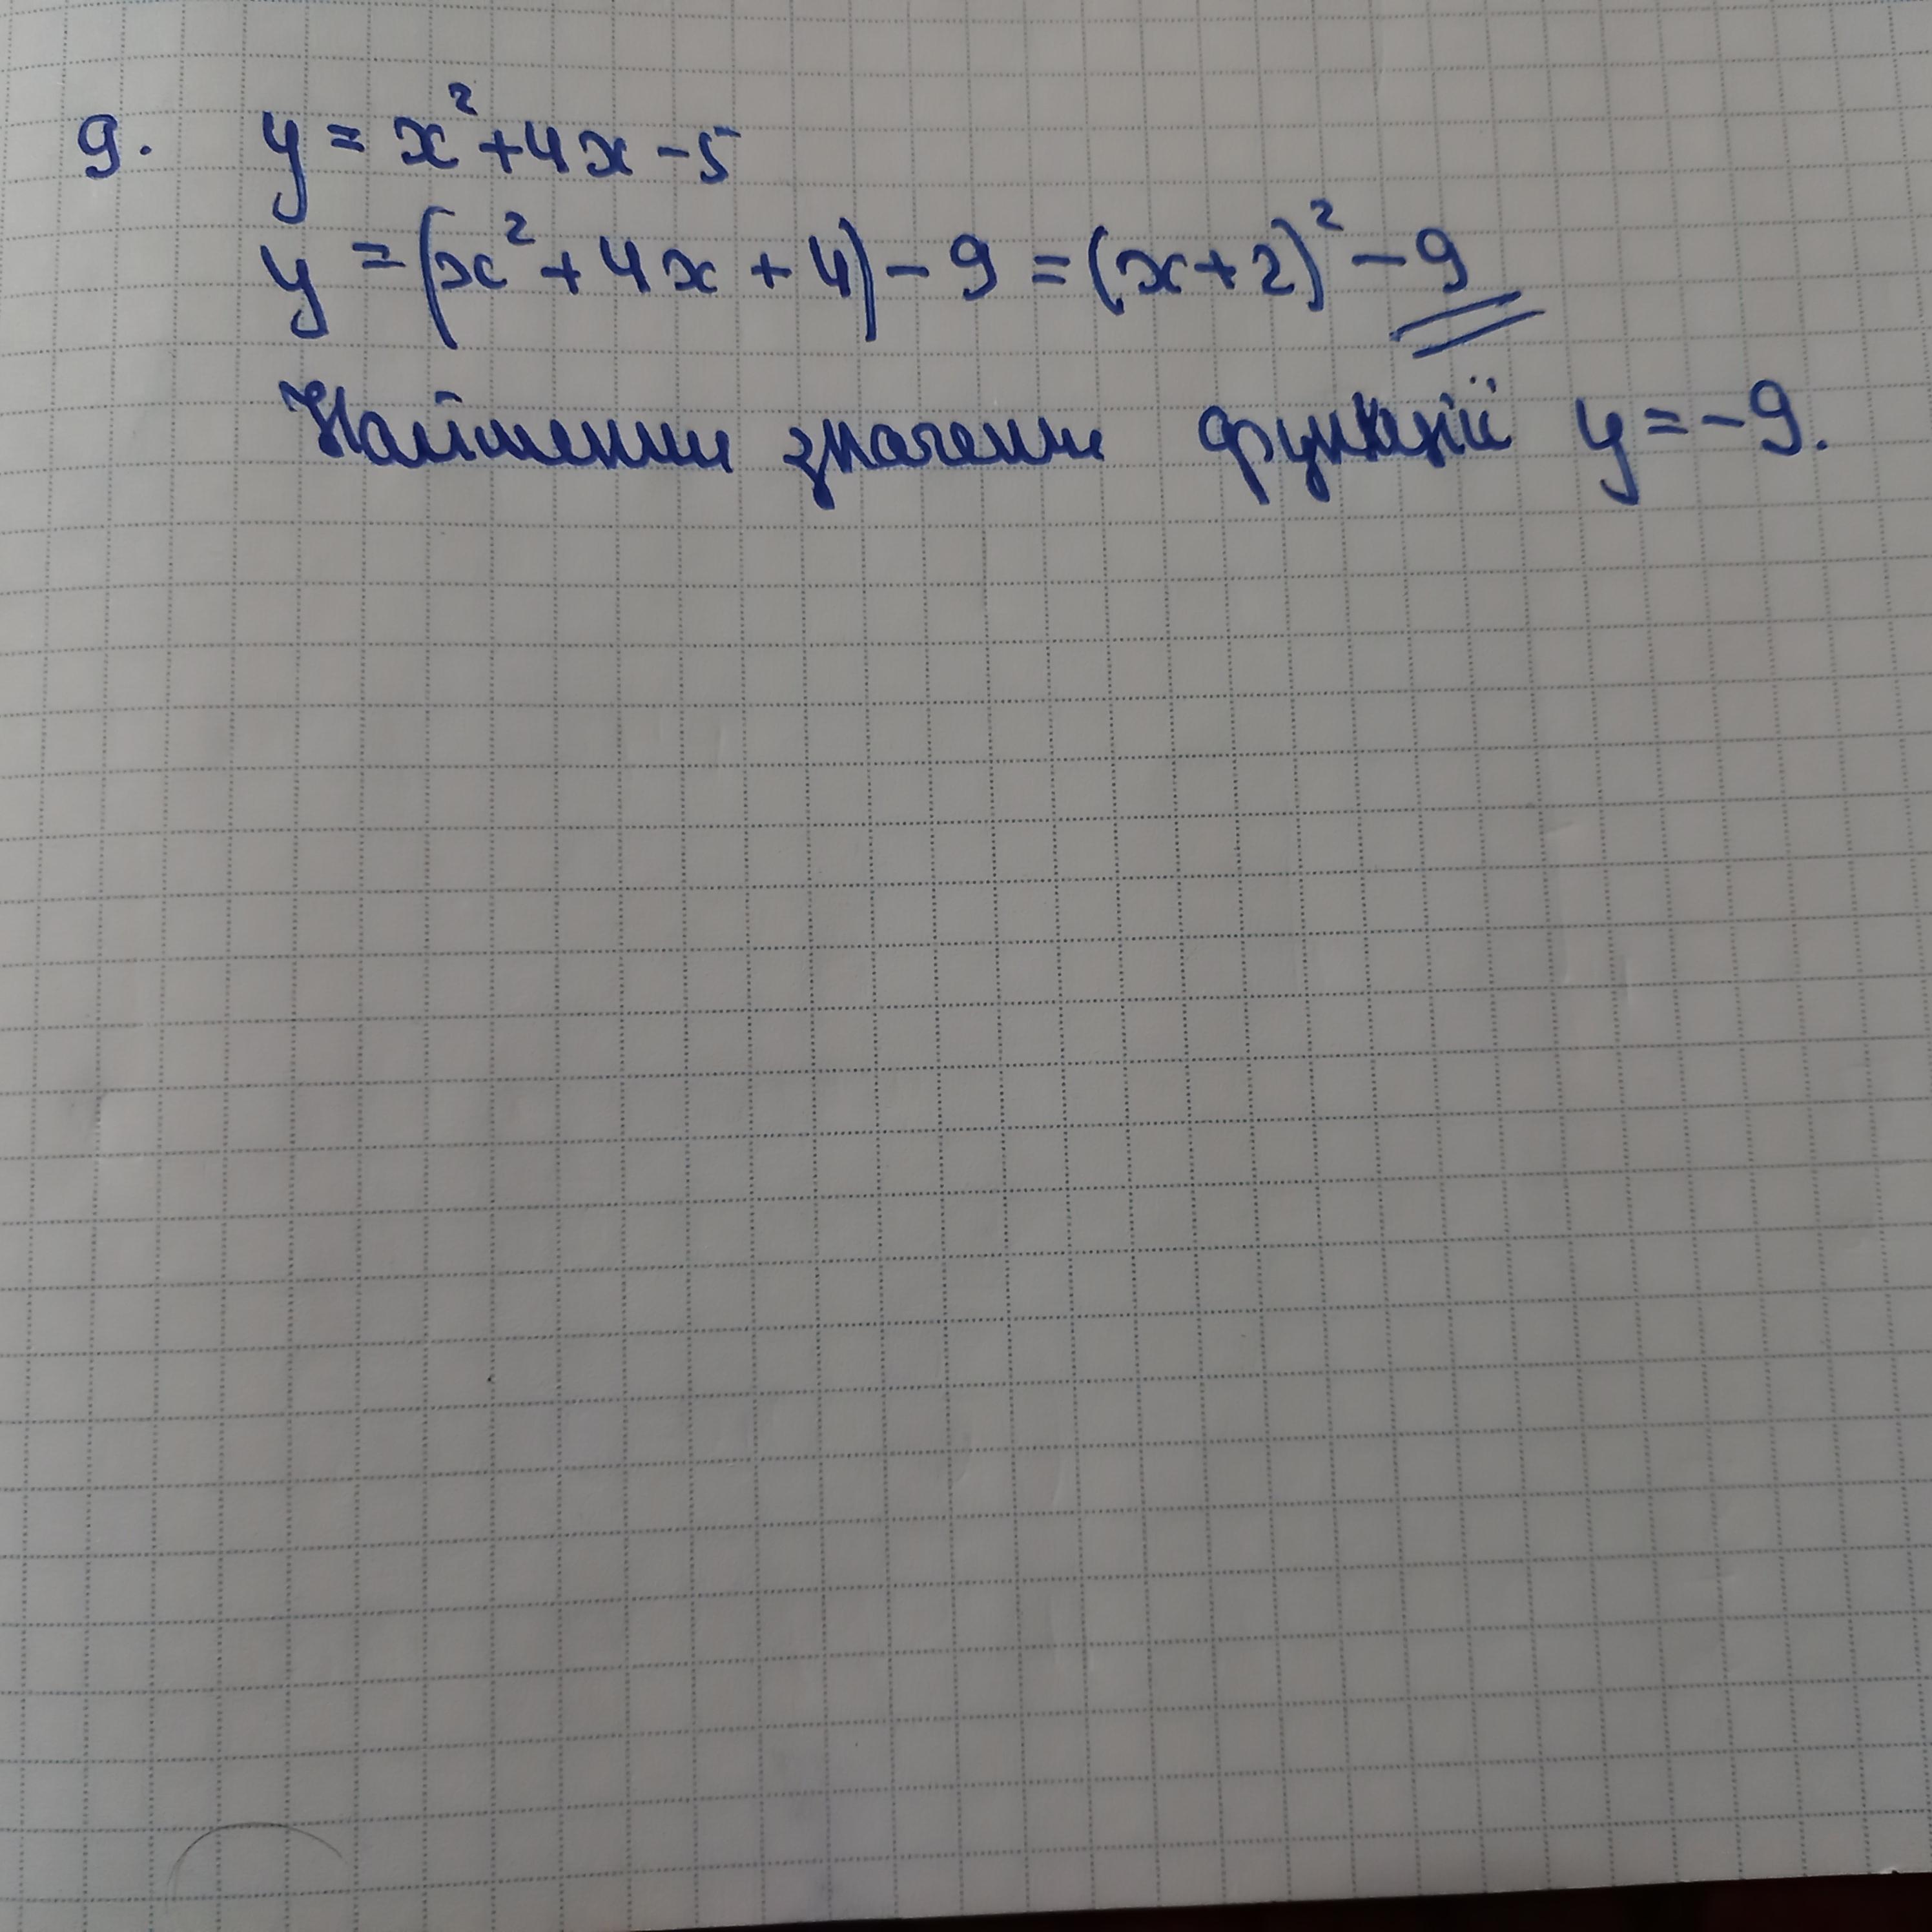 9. y = x² + 4x - 5
y = (x² + 4x + 4) - 9 = (x + 2)² - 9
Найменше значення функції y = -9.